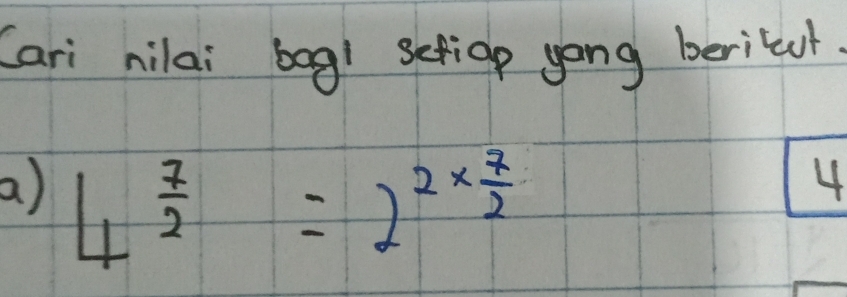 Cari nilai bagi setiap yang berikut.
a) 4^(7/2) = 2^(2 × 7/2)
4